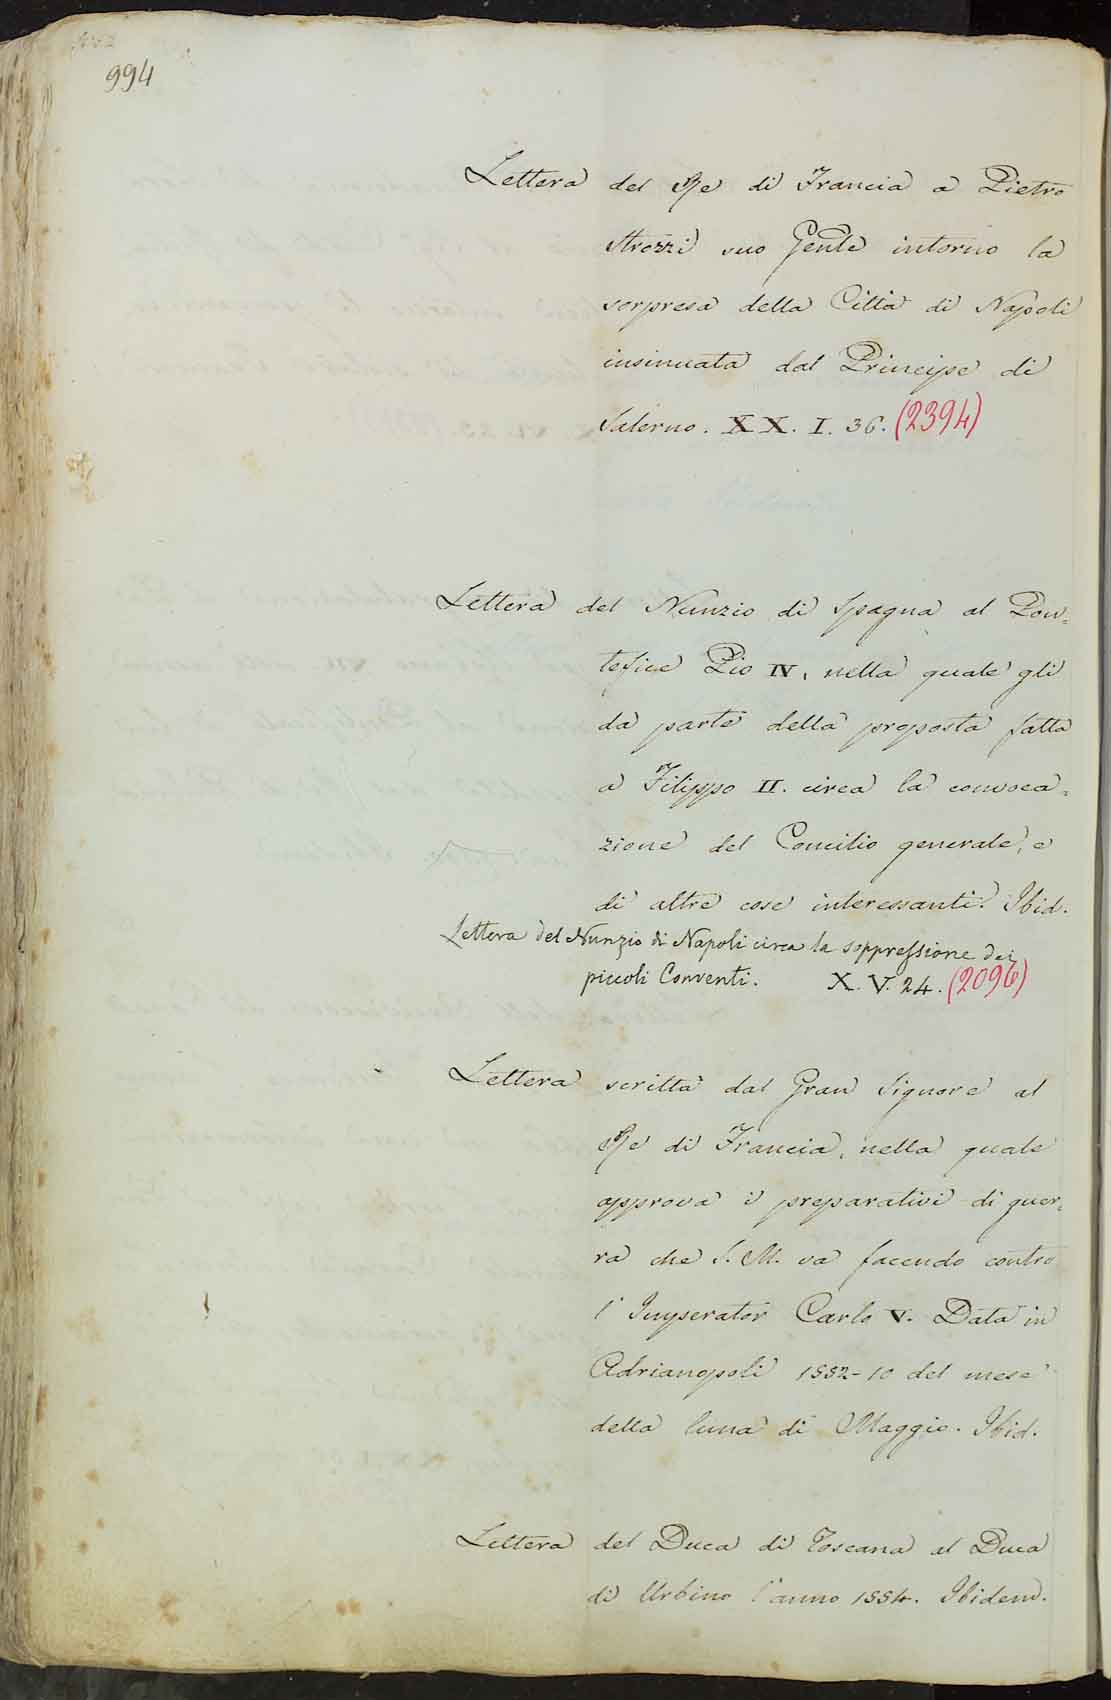 994
Lettera del Re di Francia a Pietro
Strozzi suo Gen̅le intorno la
sorpresa della Città di Napoli
insinuata dal Principe di
Salerno. XX. I. 36. (2394)
Lettera del Nunzio di Spagna al Pon-
tefice Pio IV, nella quale gli
da parte della proposta fatta
a Filippo II. circa la convoca-
zione del Concilio generale, e
di altre cose interessanti. Ibid.
Lettera del Nunzio di Napoli circa la soppressione dei
piccoli Conventi. X. V. 24. (2096)
Lettera scritta dal Gran Signore al
Re di Francia, nella quale
approva i preparativi di guer-
ra che S. M. va facendo contro
l'Imperator Carlo V. Data in
Adrianopoli 1552-10 del mese
della luna di Maggio. Ibid.
Lettera del Duca di Toscana al Duca
di Urbino l'anno 1554. Ibidem.